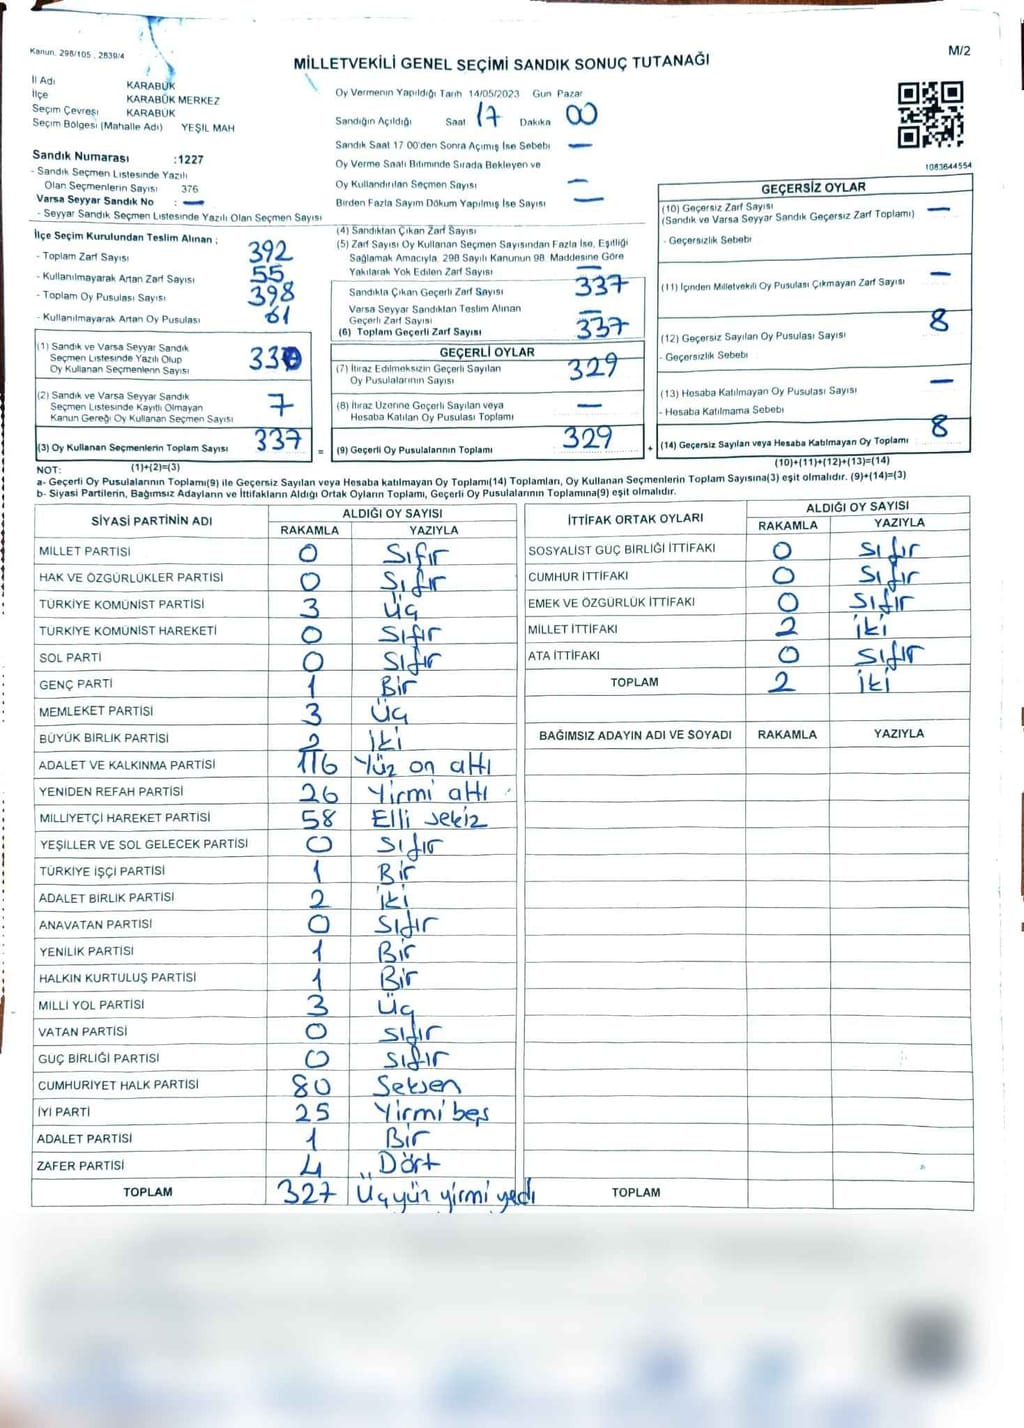 Kanun. 298/105 , 2839/4
MİLLETVEKİLİ GENEL SEÇİMİ SANDIK SONUÇ TUTANAĞI
M/2
İl Adı KARABÜK
İlçe KARABÜK MERKEZ
Seçim Çevresi KARABÜK
Seçim Bölgesi (Mahalle Adı) YEŞİL MAH
Sandık Numarası :1227
- Sandık Seçmen Listesinde Yazılı
Olan Seçmenlerin Sayısı 376
Varsa Seyyar Sandık No : —
- Seyyar Sandık Seçmen Listesinde Yazılı Olan Seçmen Sayısı
Oy Vermenin Yapıldığı Tarih 14/05/2023 Gün Pazar
Sandığın Açıldığı Saat 17 Dakika 00
Sandık Saat 17 00'den Sonra Açımış İse Sebebi —
Oy Verme Saati Bitiminde Sırada Bekleyen ve
Oy Kullandırılan Seçmen Sayısı —
Birden Fazla Sayım Döküm Yapılmış İse Sayısı —
1083644554
İlçe Seçim Kurulundan Teslim Alınan ;
- Toplam Zarf Sayısı 392
- Kullanılmayarak Artan Zarf Sayısı 55
- Toplam Oy Pusulası Sayısı 398
- Kullanılmayarak Artan Oy Pusulası 61
(1) Sandık ve Varsa Seyyar Sandık
Seçmen Listesinde Yazılı Olup
Oy Kullanan Seçmenlerin Sayısı 330
(2) Sandık ve Varsa Seyyar Sandık
Seçmen Listesinde Kayıtlı Olmayan
Kanun Gereği Oy Kullanan Seçmen Sayısı 7
(3) Oy Kullanan Seçmenlerin Toplam Sayısı 337
(1)+(2)=(3)
(4) Sandıktan Çıkan Zarf Sayısı
(5) Zarf Sayısı Oy Kullanan Seçmen Sayısından Fazla İse, Eşitliği
Sağlamak Amacıyla, 298 Sayılı Kanunun 98. Maddesine Göre
Yakılarak Yok Edilen Zarf Sayısı —
Sandıkta Çıkan Geçerli Zarf Sayısı 337
Varsa Seyyar Sandıktan Teslim Alınan
Geçerli Zarf Sayısı —
(6) Toplam Geçerli Zarf Sayısı 337
GEÇERLİ OYLAR
(7) İtiraz Edilmeksizin Geçerli Sayılan
Oy Pusulalarının Sayısı 329
(8) İtiraz Üzerine Geçerli Sayılan veya
Hesaba Katılan Oy Pusulası Toplamı —
= (9) Geçerli Oy Pusulalarının Toplamı 329 +
GEÇERSİZ OYLAR
(10) Geçersiz Zarf Sayısı —
(Sandık ve Varsa Seyyar Sandık Geçersiz Zarf Toplamı)
- Geçersizlik Sebebi
(11) İçinden Milletvekili Oy Pusulası Çıkmayan Zarf Sayısı —
(12) Geçersiz Sayılan Oy Pusulası Sayısı 8
- Geçersizlik Sebebi
(13) Hesaba Katılmayan Oy Pusulası Sayısı —
- Hesaba Katılmama Sebebi
(14) Geçersiz Sayılan veya Hesaba Katılmayan Oy Toplamı 8
(10)+(11)+(12)+(13)=(14)
NOT:
a- Geçerli Oy Pusulalarının Toplamı(9) ile Geçersiz Sayılan veya Hesaba katılmayan Oy Toplamı(14) Toplamları, Oy Kullanan Seçmenlerin Toplam Sayısına(3) eşit olmalıdır. (9)+(14)=(3)
b- Siyasi Partilerin, Bağımsız Adayların ve İttifakların Aldığı Ortak Oyların Toplamı, Geçerli Oy Pusulalarının Toplamına(9) eşit olmalıdır.
SİYASİ PARTİNİN ADI ALDIĞI OY SAYISI
RAKAMLA YAZIYLA
MİLLET PARTİSİ 0 Sıfır
HAK VE ÖZGÜRLÜKLER PARTİSİ 0 Sıfır
TÜRKİYE KOMÜNİST PARTİSİ 3 Üç
TÜRKİYE KOMÜNİST HAREKETİ 0 Sıfır
SOL PARTİ 0 Sıfır
GENÇ PARTİ 1 Bir
MEMLEKET PARTİSİ 3 Üç
BÜYÜK BİRLİK PARTİSİ 2 İki
ADALET VE KALKINMA PARTİSİ 116 Yüz on altı
YENİDEN REFAH PARTİSİ 26 Yirmi altı
MİLLİYETÇİ HAREKET PARTİSİ 58 Elli sekiz
YEŞİLLER VE SOL GELECEK PARTİSİ 0 Sıfır
TÜRKİYE İŞÇİ PARTİSİ 1 Bir
ADALET BİRLİK PARTİSİ 2 İki
ANAVATAN PARTİSİ 0 Sıfır
YENİLİK PARTİSİ 1 Bir
HALKIN KURTULUŞ PARTİSİ 1 Bir
MİLLİ YOL PARTİSİ 3 Üç
VATAN PARTİSİ 0 Sıfır
GÜÇ BİRLİĞİ PARTİSİ 0 Sıfır
CUMHURİYET HALK PARTİSİ 80 Seksen
İYİ PARTİ 25 Yirmi beş
ADALET PARTİSİ 1 Bir
ZAFER PARTİSİ 4 Dört
TOPLAM 327 Üçyüz yirmi yedi
İTTİFAK ORTAK OYLARI ALDIĞI OY SAYISI
RAKAMLA YAZIYLA
SOSYALİST GÜÇ BİRLİĞİ İTTİFAKI 0 Sıfır
CUMHUR İTTİFAKI 0 Sıfır
EMEK VE ÖZGÜRLÜK İTTİFAKI 0 Sıfır
MİLLET İTTİFAKI 2 İki
ATA İTTİFAKI 0 Sıfır
TOPLAM 2 İki
BAĞIMSIZ ADAYIN ADI VE SOYADI RAKAMLA YAZIYLA
TOPLAM